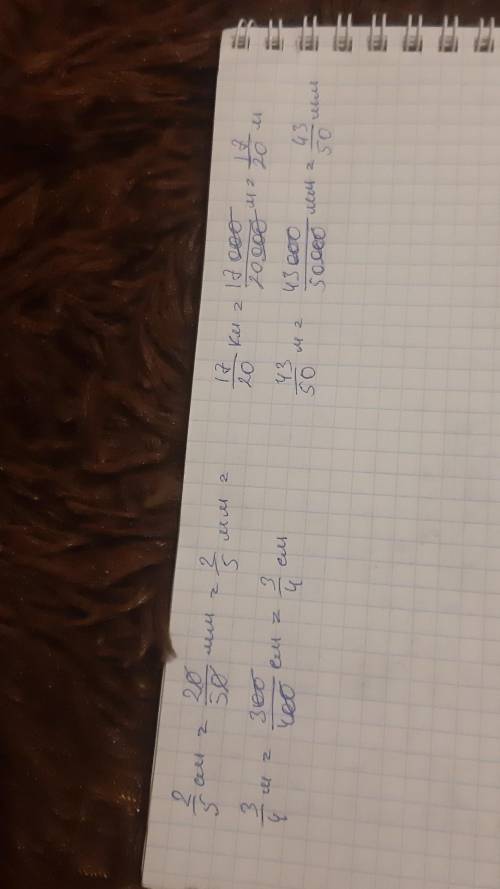 2/5 см = 20/50 мм = 2/5 мм =
3/4 м = 300/400 см = 3/4 см
17/20 км = 17000/20000 м = 17/20 м
43/50 м = 43000/50000 мм = 43/50 мм